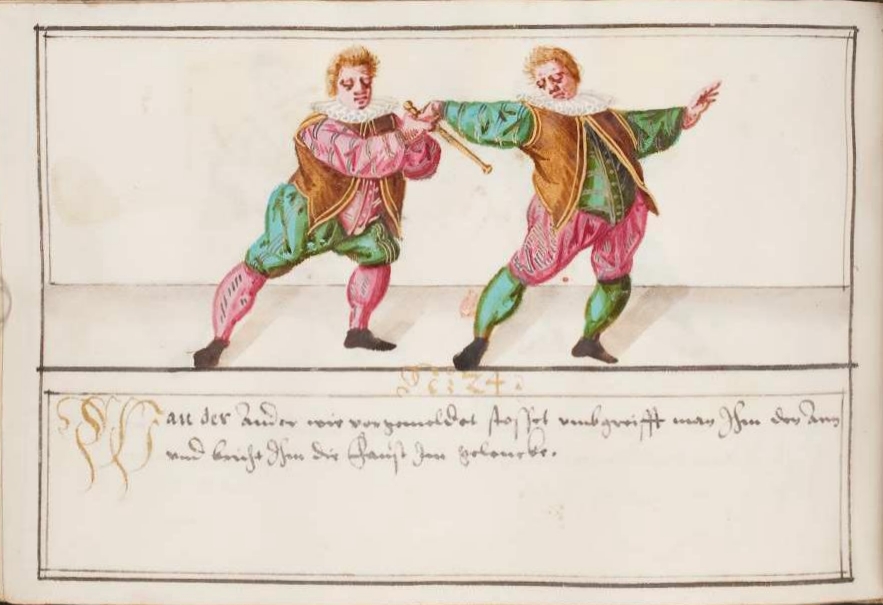 No: 24.
Wan der Ander wie vorgemeldet stosset umbgreifft man Ihm den Arm
und bricht Ihm die Faust Im gelencke.